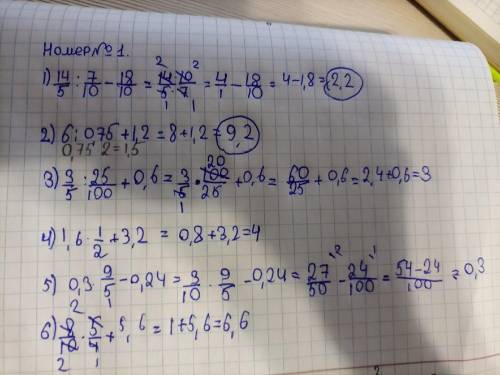 Номер № 1.
1) 14/5 : 7/10 - 18/10 = 14/5 · 10/7 = 4/1 - 18/10 = 4 - 1,8 = 2,2
2) 6 : 075 + 1,2 = 8 + 1,2 = 9,2
0,75 2 = 1,5
3) 3/5 : 25/100 + 0,6 = 3/5 · 100/25 + 0,6 = 60/25 + 0,6 = 2,4 + 0,6 = 3
4) 1,6 · 1/2 + 3,2 = 0,8 + 3,2 = 4
5) 0,3 · 9/5 - 0,24 = 3/10 · 9/5 - 0,24 = 27/50 - 24/100 = 54-24/100 = 0,3
6) 8/10 · 5/4 + 5,6 = 1 + 5,6 = 6,6